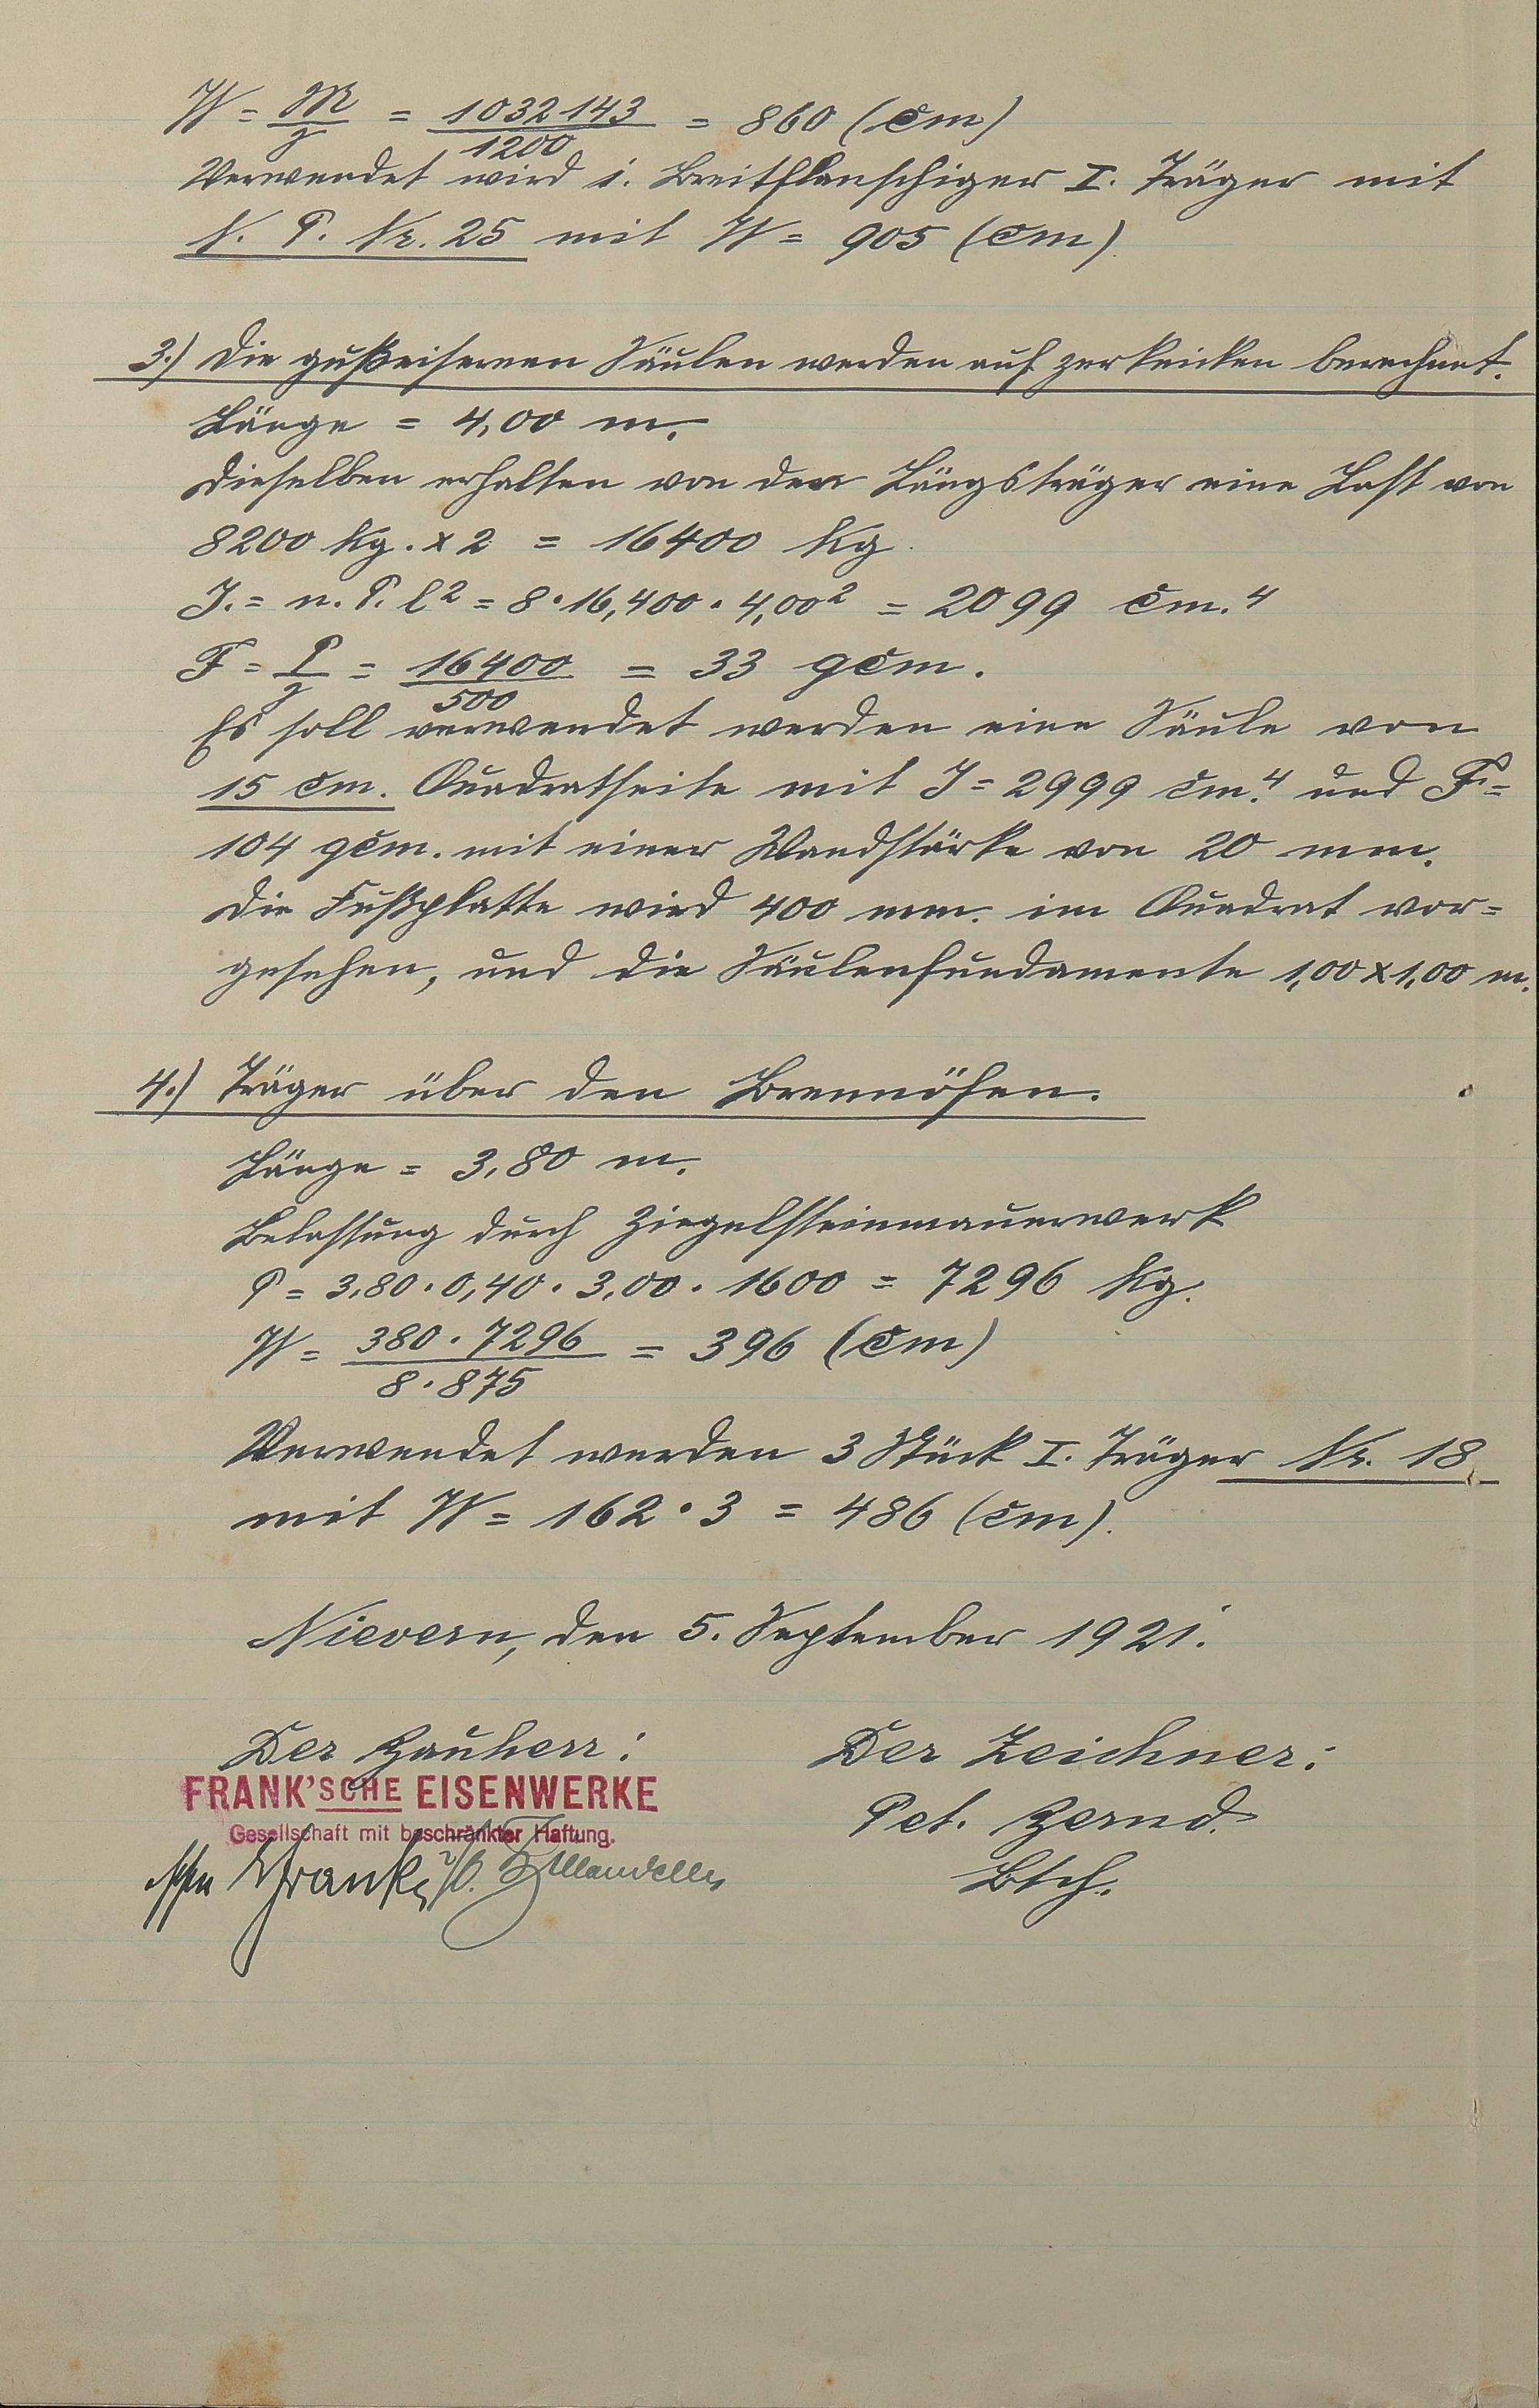 W = M/z = 1032143/1200 = 860 (cm)
Verwendet wird i. Breitflanschiger I. Träger mit
N. P. Nr. 25 mit W = 905 (cm).
3.) Die gußeisernen Säulen werden auf zerknicken berechnet.
Länge = 4,00 m.
Dieselben erhalten von den Längsträger eine Last von
8200 Kg. x 2 = 16400 Kg.
J. = n. P. l² = 8 · 16,400 · 4,00² = 2099 cm.⁴
F = P/z = 16400/500 = 33 qcm.
Es soll verwendet werden eine Säule von
15 cm. Quadratseite mit J = 2999 cm.⁴ und F =
104 qcm. mit einer Wandstärke von 20 mm.
Die Fußplatte wird 400 mm. im Quadrat vor=
gesehen, und die Säulenfundamente 1,00 x 1,00 m.
4.) Träger über den Brennöfen.
Länge = 3,80 m.
Belastung durch Ziegelsteinmauerwerk
P = 3,80 · 0,40 · 3,00 · 1600 = 7296 Kg.
W = 380 · 7296/8 · 875 = 396 (cm)
Verwendet werden 3 Stück I. Träger Nr. 18
mit W = 162 · 3 = 486 (cm).
Nievern, den 5. September 1921.
Der Bauherr: Der Zeichner:
FRANK'SCHE EISENWERKE
Gesellschaft mit beschränkter Haftung.
Pet. Bernd.
Frank
Btch.